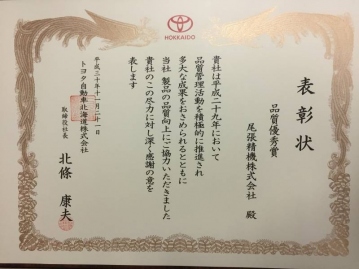 HOKKAIDO
表彰状
品質優秀賞
尾張精機株式会社 殿
貴社は平成二十九年において
品質管理活動を積極的に推進され
多大な成果をおさめられるとともに
当社 製品の品質向上にご協力いただきました
貴社のこの尽力に対し深く感謝の意を
表します
トヨタ自動車北海道株式会社
取締役社長
北條 康夫